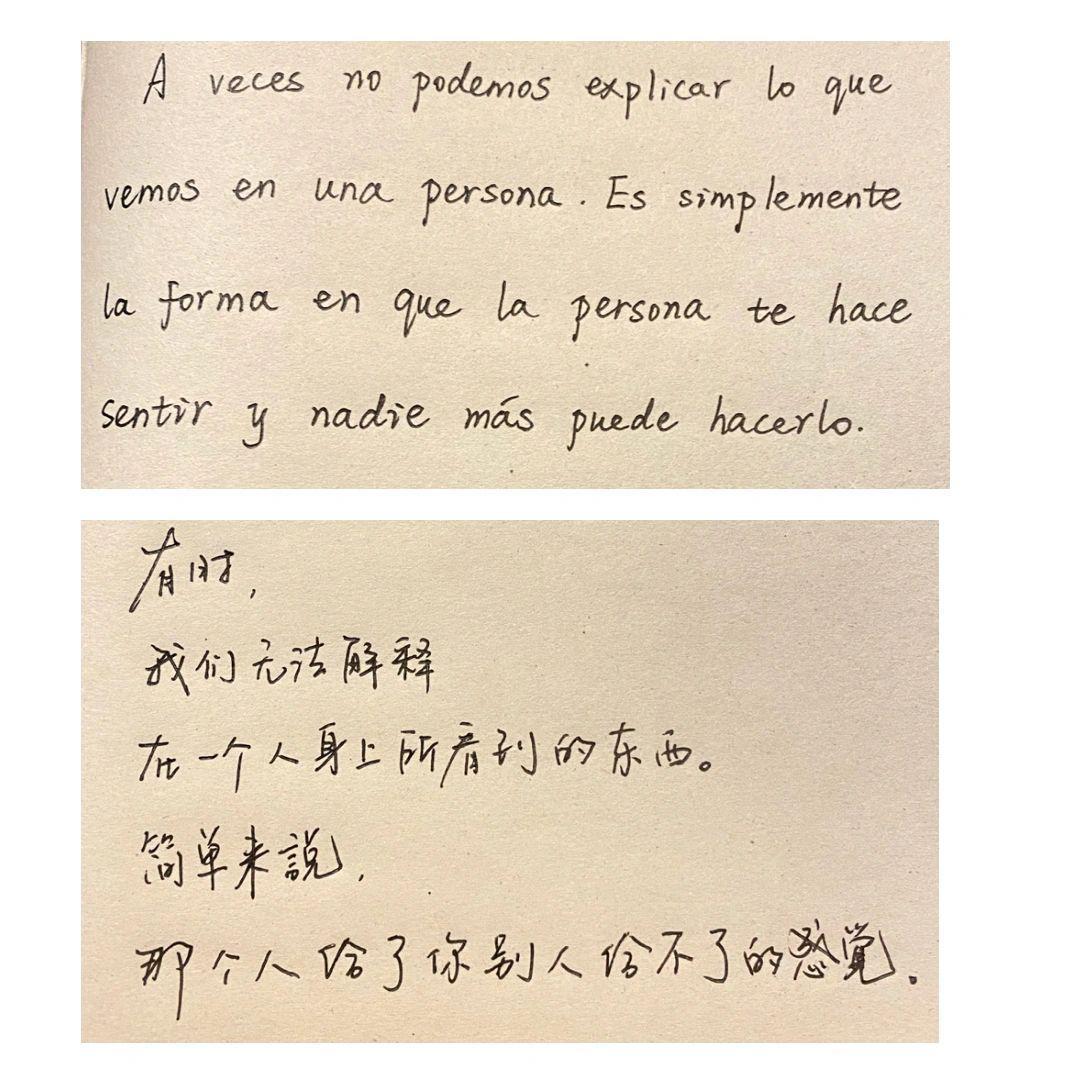 A veces no podemos explicar lo que
vemos en una persona. Es simplemente
la forma en que la persona te hace
sentir y nadie más puede hacerlo.
有时,
我们无法解释
在一个人身上所看到的东西。
简单来説,
那个人给了你别人给不了的感覚。